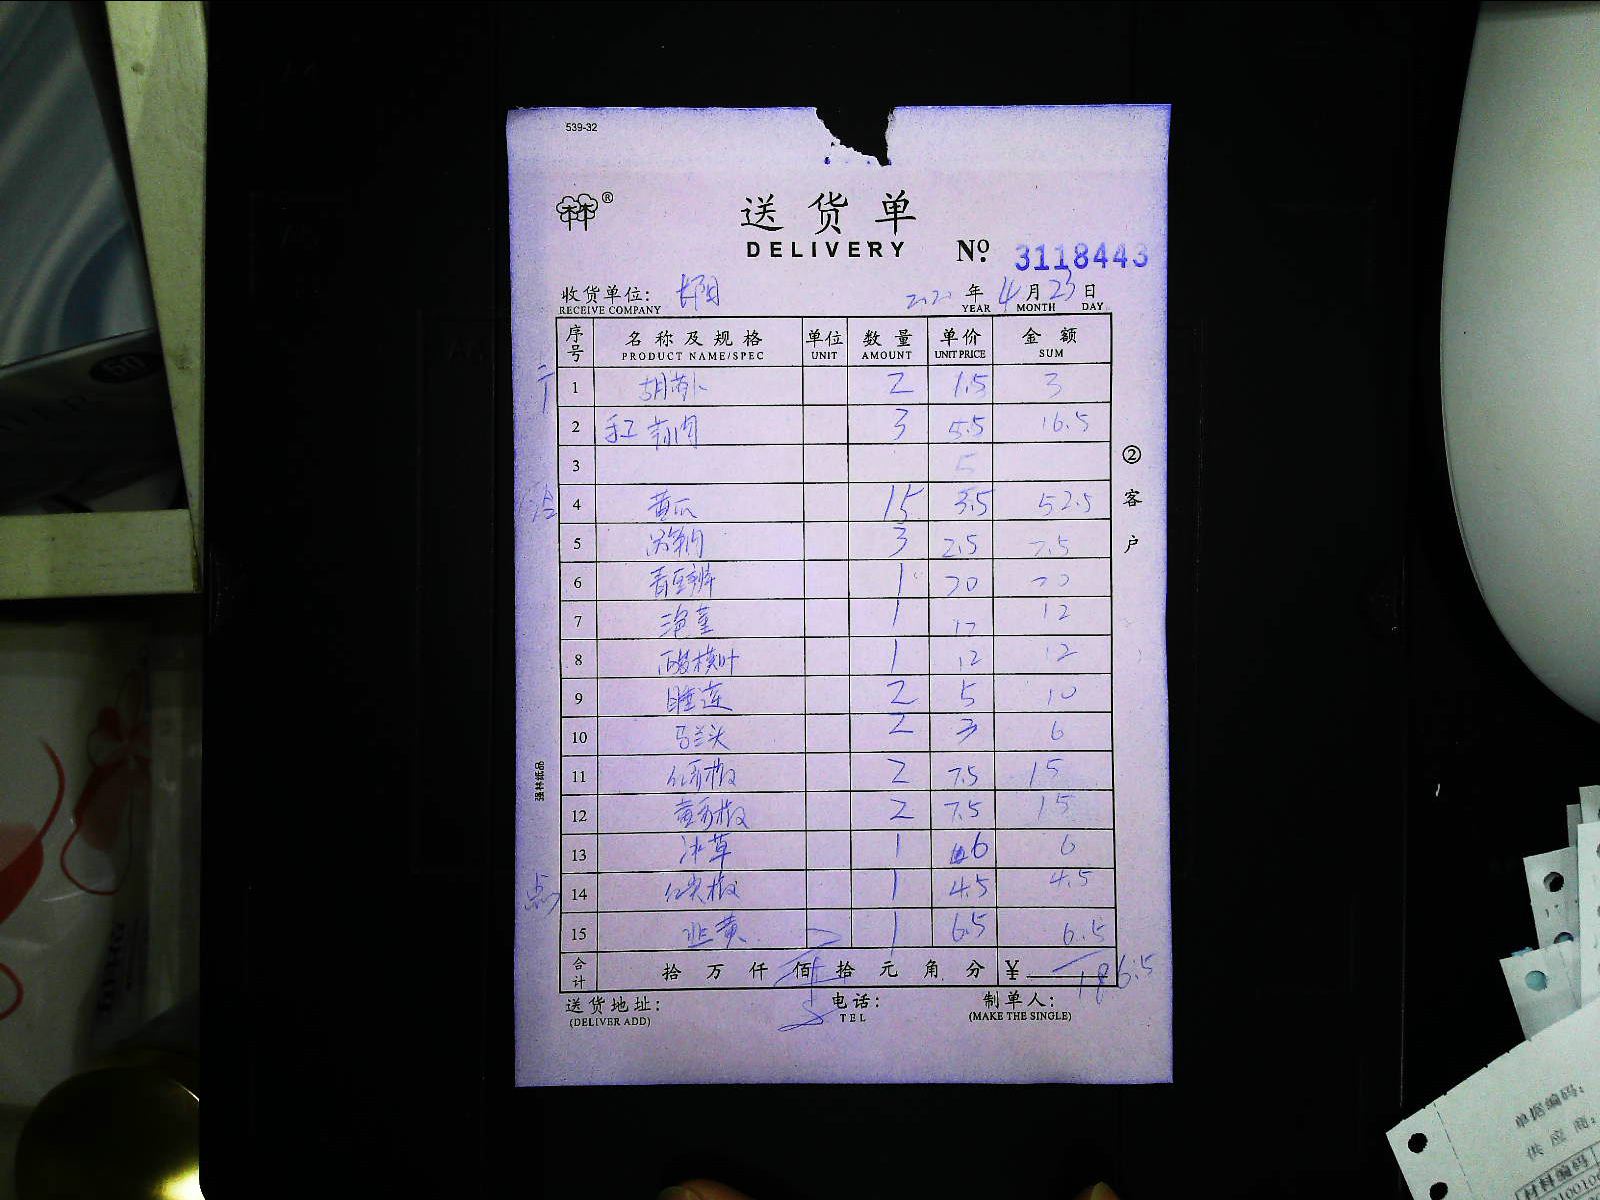 539-32
林林®
送货单
DELIVERY № 3118443
收货单位: 2020年4月23日
RECEIVE COMPANY YEAR MONTH DAY
序号 名称及规格 单位 数量 单价 金额
PRODUCT NAME/SPEC UNIT AMOUNT UNIT PRICE SUM
1 胡萝卜 2 1.5 3
2 3 5.5 16.5
3 5
4 黄瓜 15 3.5 52.5
5 3 2.5 7.5
6 青豆瓣 1 20 20
7 1 12 12
8 酸模叶 1 12 12
9 睡莲 2 5 10
10 马兰头 2 3 6
11 红彩椒 2 7.5 15
12 黄彩椒 2 7.5 15
13 冰草 1 6 6
14 红尖椒 1 4.5 4.5
15 韭黄 1 6.5 6.5
合计 拾万仟佰拾元角分 ¥ 186.5
送货地址: 电话: 制单人:
(DELIVER ADD) TEL (MAKE THE SINGLE)
②客户
强林纸品
单据编码:
供应商:
材料编码